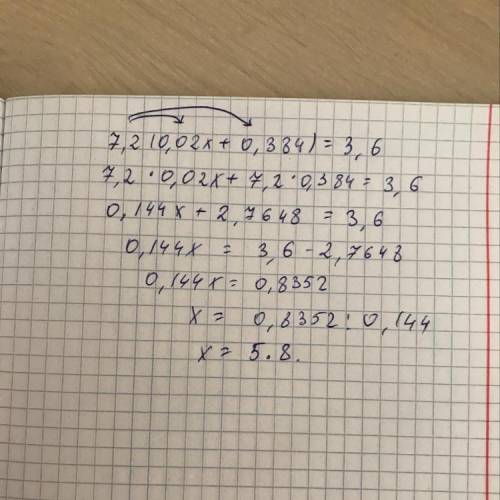 7,2(0,02x+0,384)=3,6
7,2·0,02x+7,2·0,384=3,6
0,144x+2,7648=3,6
0,144x=3,6-2,7648
0,144x=0,8352
x=0,8352:0,144
x=5.8.